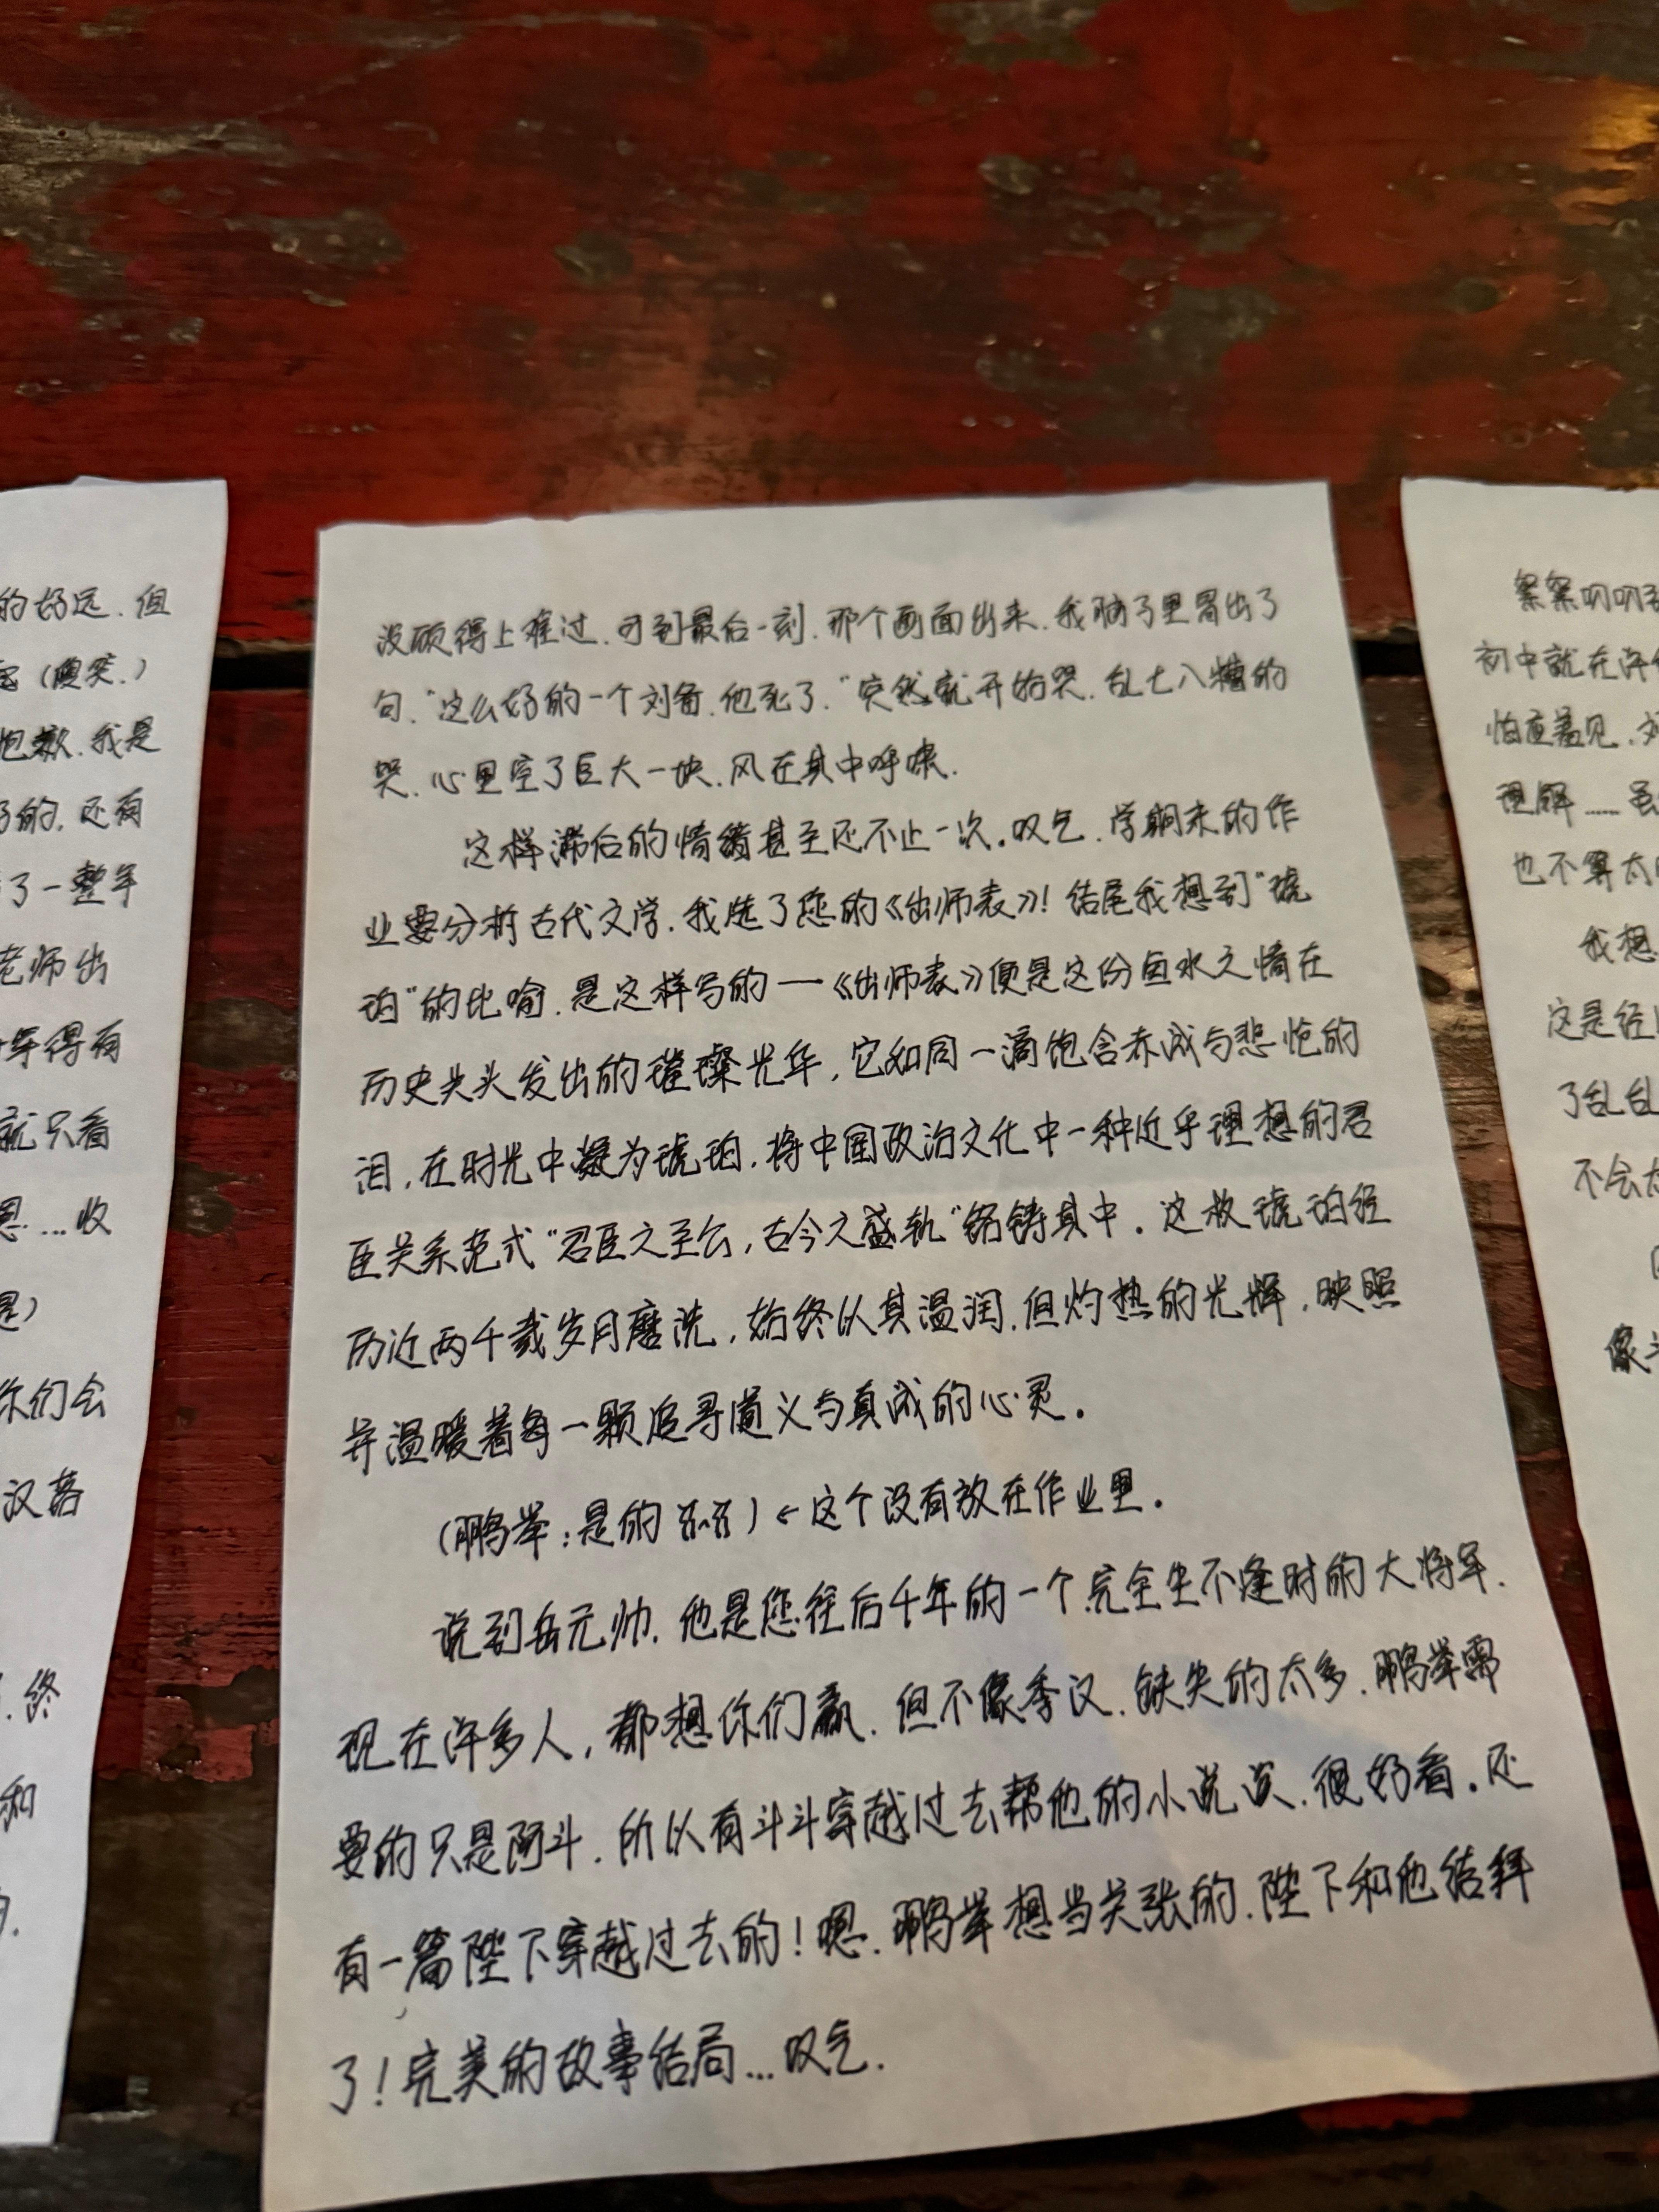 的好远.但
(傻笑.)
抱歉.我是
的.还有
了一整年
老师出
年得有
就只看
恩...收
是)
你们会
汉落
.终
和
没顾得上难过.可到最后一刻.那个画面出来.我脑子里冒出了
句.“这么好的一个刘备.他死了.”突然就开始哭.乱七八糟的
哭.心里空了巨大一块.风在其中呼啸.
这样滞后的情绪甚至还不止一次。叹气.学期末的作
业要分析古代文学.我选了您的《出师表》!结尾我想到“琥
珀”的比喻.是这样写的—《出师表》便是这份鱼水之情在
历史尽头发出的璀璨光华,它如同一滴饱含赤诚与悲怆的
泪,在时光中凝为琥珀,将中国政治文化中一种近乎理想的君
臣关系范式“君臣之至公,古今之盛轨”铭铸其中。这枚琥珀经
历近两千载岁月磨洗,始终以其温润.但灼热的光辉,映照
并温暖着每一颗追寻道义与真诚的心灵。
(鹏举:是的)←这个没有放在作业里。
说到岳元帅.他是您往后千年的一个完全生不逢时的大将军.
现在许多人,都想你们赢.但不像季汉.缺失的太多.鹏举需
要的只是阿斗.所以有斗斗穿越过去帮他的小说.很好看.还
有一篇陛下穿越过去的!嗯.鹏举想当关张的.陛下和他结拜
了!完美的故事结局...叹气.
絮絮叨叨
初中就在许
怕直羞见.
理解......虽
也不算太
我想
这是经
了乱乱
不会太
像